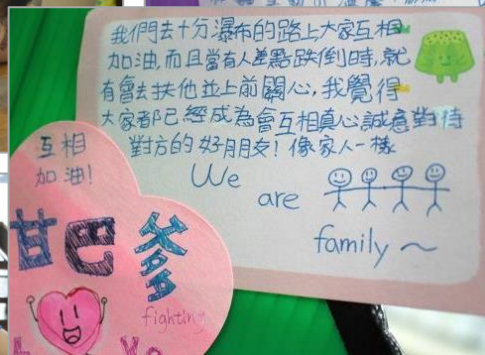 我們去十分瀑布的路上大家互相
加油,而且當有人差點跌倒時,就
有會去扶他並上前關心,我覺得
大家都已經成為會互相真心誠意對待
對方的好朋友!像家人一樣
We
are
family ~
互相
加油!
甘巴爹
fighting